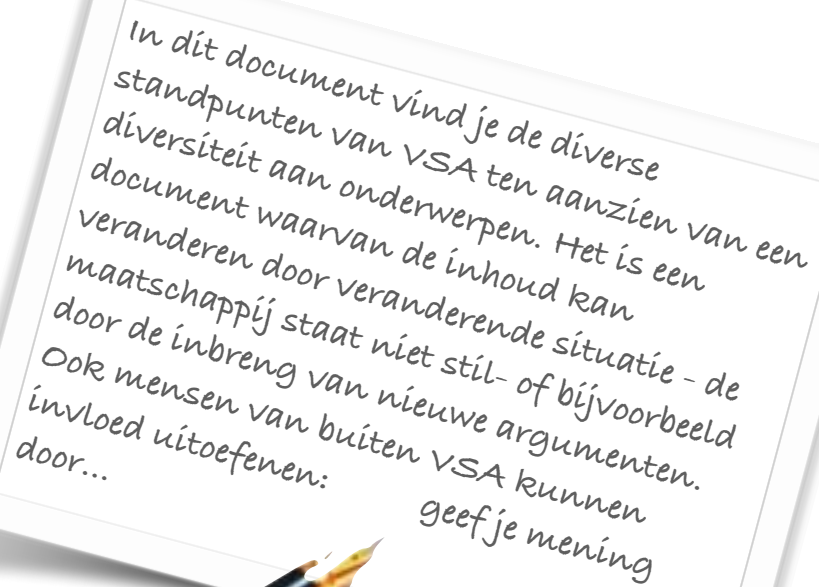 In dit document vind je de diverse
standpunten van VSA ten aanzien van een
diversiteit aan onderwerpen. Het is een
document waarvan de inhoud kan
veranderen door veranderende situatie - de
maatschappij staat niet stil- of bijvoorbeeld
door de inbreng van nieuwe argumenten.
Ook mensen van buiten VSA kunnen
invloed uitoefenen: geef je mening
door...